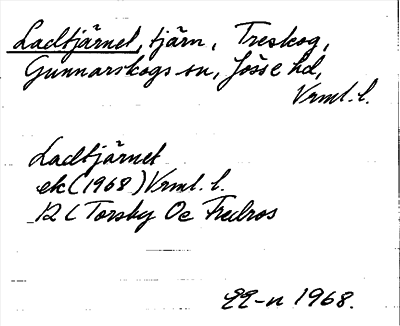 Ladtjärnet, tjärn, Treskog,
Gunnarskogs sn, Jösse hd,
Vrml. l.
Ladtjärnet
ek (1968) Vrml. l.
12 C Torsby Oe Fredros
EE-n 1968.